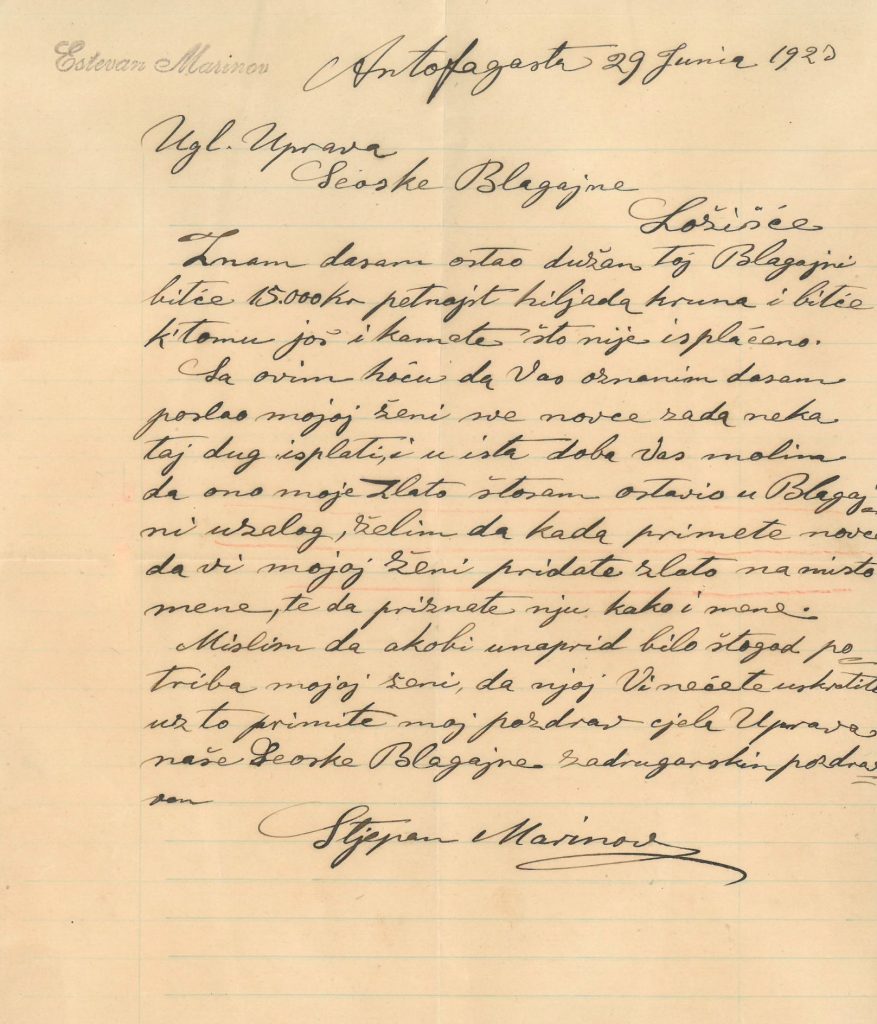 Estevan Marinov
Antofagasta 29 Junia 192
Ugl. Uprava
Seoske Blagajne
Ložišće
Znam dasam ostao dužan toj Blagajni
bitće 15.000 Kr petnajst hiljada kruna i bitće
k'tomu još i kamate što nije isplaćeno.
Sa ovim hoću da Vas oznanim dasam
poslao mojoj ženi sve novce zada neka
taj dug isplati, i u ista doba Vas molim
da ono moje zlato štosam ostavio u Blagaj=
ni uzalog, želim da kada primete novce
da vi mojoj ženi pridate zlato namisto
mene, te da priznate nju kako i mene.
Mislim da akobi unaprid bilo štogod po=
triba mojoj ženi, da njoj Vi nećete uskratiti
uz to primite moj pozdrav cjela Uprava
naše Seoske Blagajne zadrugarskin pozdra=
von
Stjepan Marinov